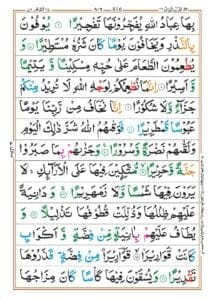 بِهَا عِبَادُ اللّٰهِ يُفَجِّرُوْنَهَا تَفْجِيْرًا ۝ يُوْفُوْنَ
بِالنَّذْرِ وَيَخَافُوْنَ يَوْمًا كَانَ شَرُّهٗ مُسْتَطِيْرًا ۝ وَ
يُطْعِمُوْنَ الطَّعَامَ عَلٰى حُبِّهٖ مِسْكِيْنًا وَّ يَتِيْمًا
وَّ اَسِيْرًا ۝ اِنَّمَا نُطْعِمُكُمْ لِوَجْهِ اللّٰهِ لَا نُرِيْدُ مِنْكُمْ
جَزَآءً وَّلَا شُكُوْرًا ۝ اِنَّا نَخَافُ مِنْ رَّبِّنَا يَوْمًا
عَبُوْسًا قَمْطَرِيْرًا ۝ فَوَقٰىهُمُ اللّٰهُ شَرَّ ذٰلِكَ الْيَوْمِ
وَ لَقّٰىهُمْ نَضْرَةً وَّ سُرُوْرًا ۝ وَ جَزٰىهُمْ بِمَا صَبَرُوْا
جَنَّةً وَّ حَرِيْرًا ۝ مُّتَّكِـِٕيْنَ فِيْهَا عَلَى الْاَرَآىِٕكِ ۚ لَا
يَرَوْنَ فِيْهَا شَمْسًا وَّلَا زَمْهَرِيْرًا ۝ وَ دَانِيَةً
عَلَيْهِمْ ظِلٰلُهَا وَ ذُلِّلَتْ قُطُوْفُهَا تَذْلِيْلًا ۝ وَ
يُطَافُ عَلَيْهِمْ بِاٰنِيَةٍ مِّنْ فِضَّةٍ وَّ اَكْوَابٍ
كَانَتْ قَوَارِيْرَا۠ ۝ قَوَارِيْرَا۠ مِنْ فِضَّةٍ قَدَّرُوْهَا
تَقْدِيْرًا ۝ وَ يُسْقَوْنَ فِيْهَا كَاْسًا كَانَ مِزَاجُهَا